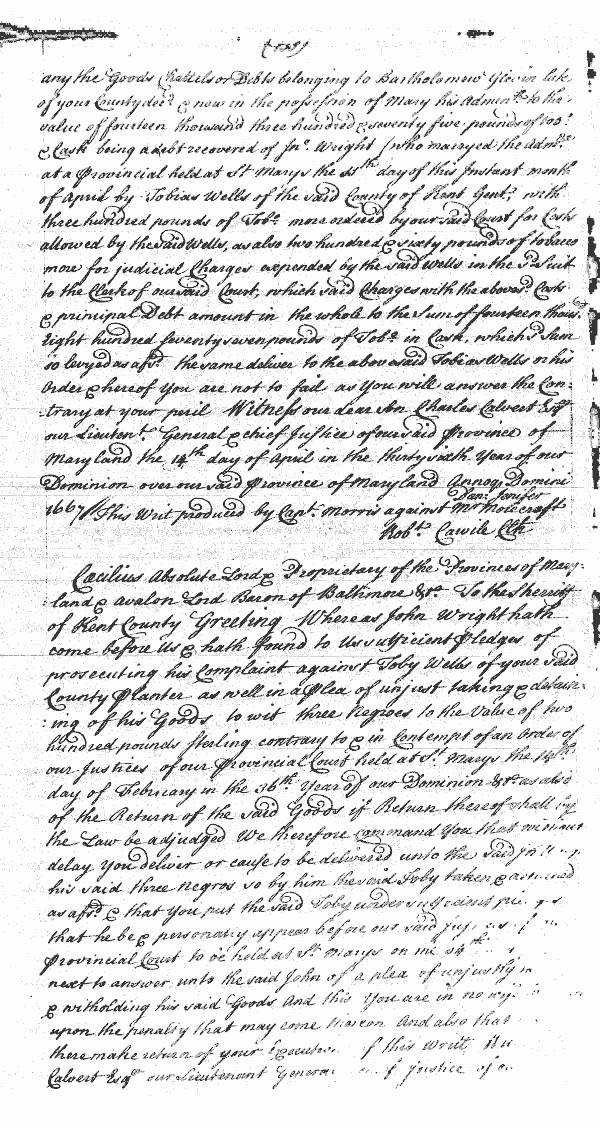 any the Goods Chattels or Debts belonging to Bartholomew Glevin late
of your County decd & now in the possession of Mary his Adminx to the
value of fourteen thousand three hundred & seventy five pounds of tobo
& Cask being a debt recovered of Jno. Wright (who marryed the Admx
at a Provincial held at St Marys the th day of this Instant month
of April by Tobias Wells of the said County of Kent Gent, with
three hundred pounds of Tobo more ordered by our said Court for Costs
allowed by the said Wells, as also two hundred & sixty pounds of tobacco
more for judicial Charges expended by the said Wells in the sd Suit
to the Clerk of our said Court, which said Charges with the abovesd Costs
& principal Debt amount in the whole to the Sum of fourteen thous:
Eight hundred seventy seven pounds of Tobo in Cask, which sd Sum
so levyed as afsd the same deliver to the abovesaid Tobias Wells or his
Order & hereof You are not to fail as You will answer the Con:
:trary at your peril Witness our dear Son Charles Calvert Esqr
our Lieutent General & chief Justice of our said Province of
Maryland the 14th day of April in the thirty sixth Year of our
Dominion over our said Province of Maryland Annoq Domini
1667 // This Writ produced by Capt. Morris against Mr Morecroft
Dan: Jenifer
Robt Cawile Clk
Cæcilius Absolute Lord & Proprietary of the Provinces of Mary:
:land & Avalon Lord Baron of Baltimore &ca To the Sherriff
of Kent County Greeting Whereas John Wright hath
come before Us & hath found to Us sufficient Pledges of
prosecuting his Complaint against Toby Wells of your said
County Planter as well in a Plea of unjust taking & detain:
:ing of his Goods to wit three Negroes to the Value of two
hundred pounds sterling contrary to & in Contempt of an Order of
our Justices of our Provincial Court held at St Marys the 14th
day of February in the 36th Year of our Dominion &ca as also
of the Return of the said Goods if Return thereof shall by
the Law be adjudged We therefore command You that without
delay You deliver or cause to be delivered unto the said
his said three Negros so by him the said Toby taken &
as afsd & that You put the said Toby under sufficient
that he be & personally appear before our said
Provincial Court to be held at St Marys on the th
next to answer unto the said John of a plea of unjustly
& witholding his said Goods And this You are in no
upon the penalty that may come thereon And also that
there make return of your Execution of this Writt
Calvert Esqr our Lieutenant General Justice of